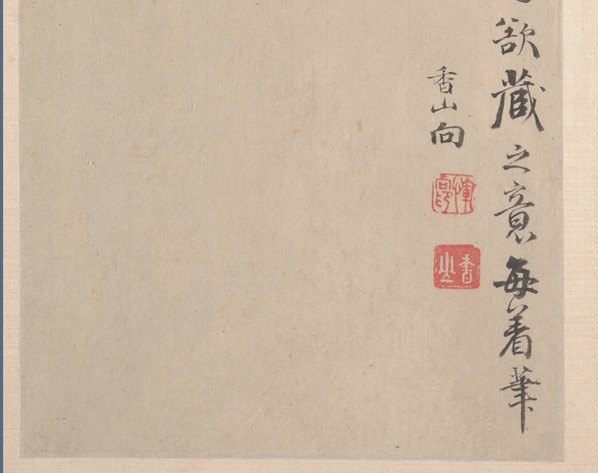 欲藏之意每着筆
香山向
香山